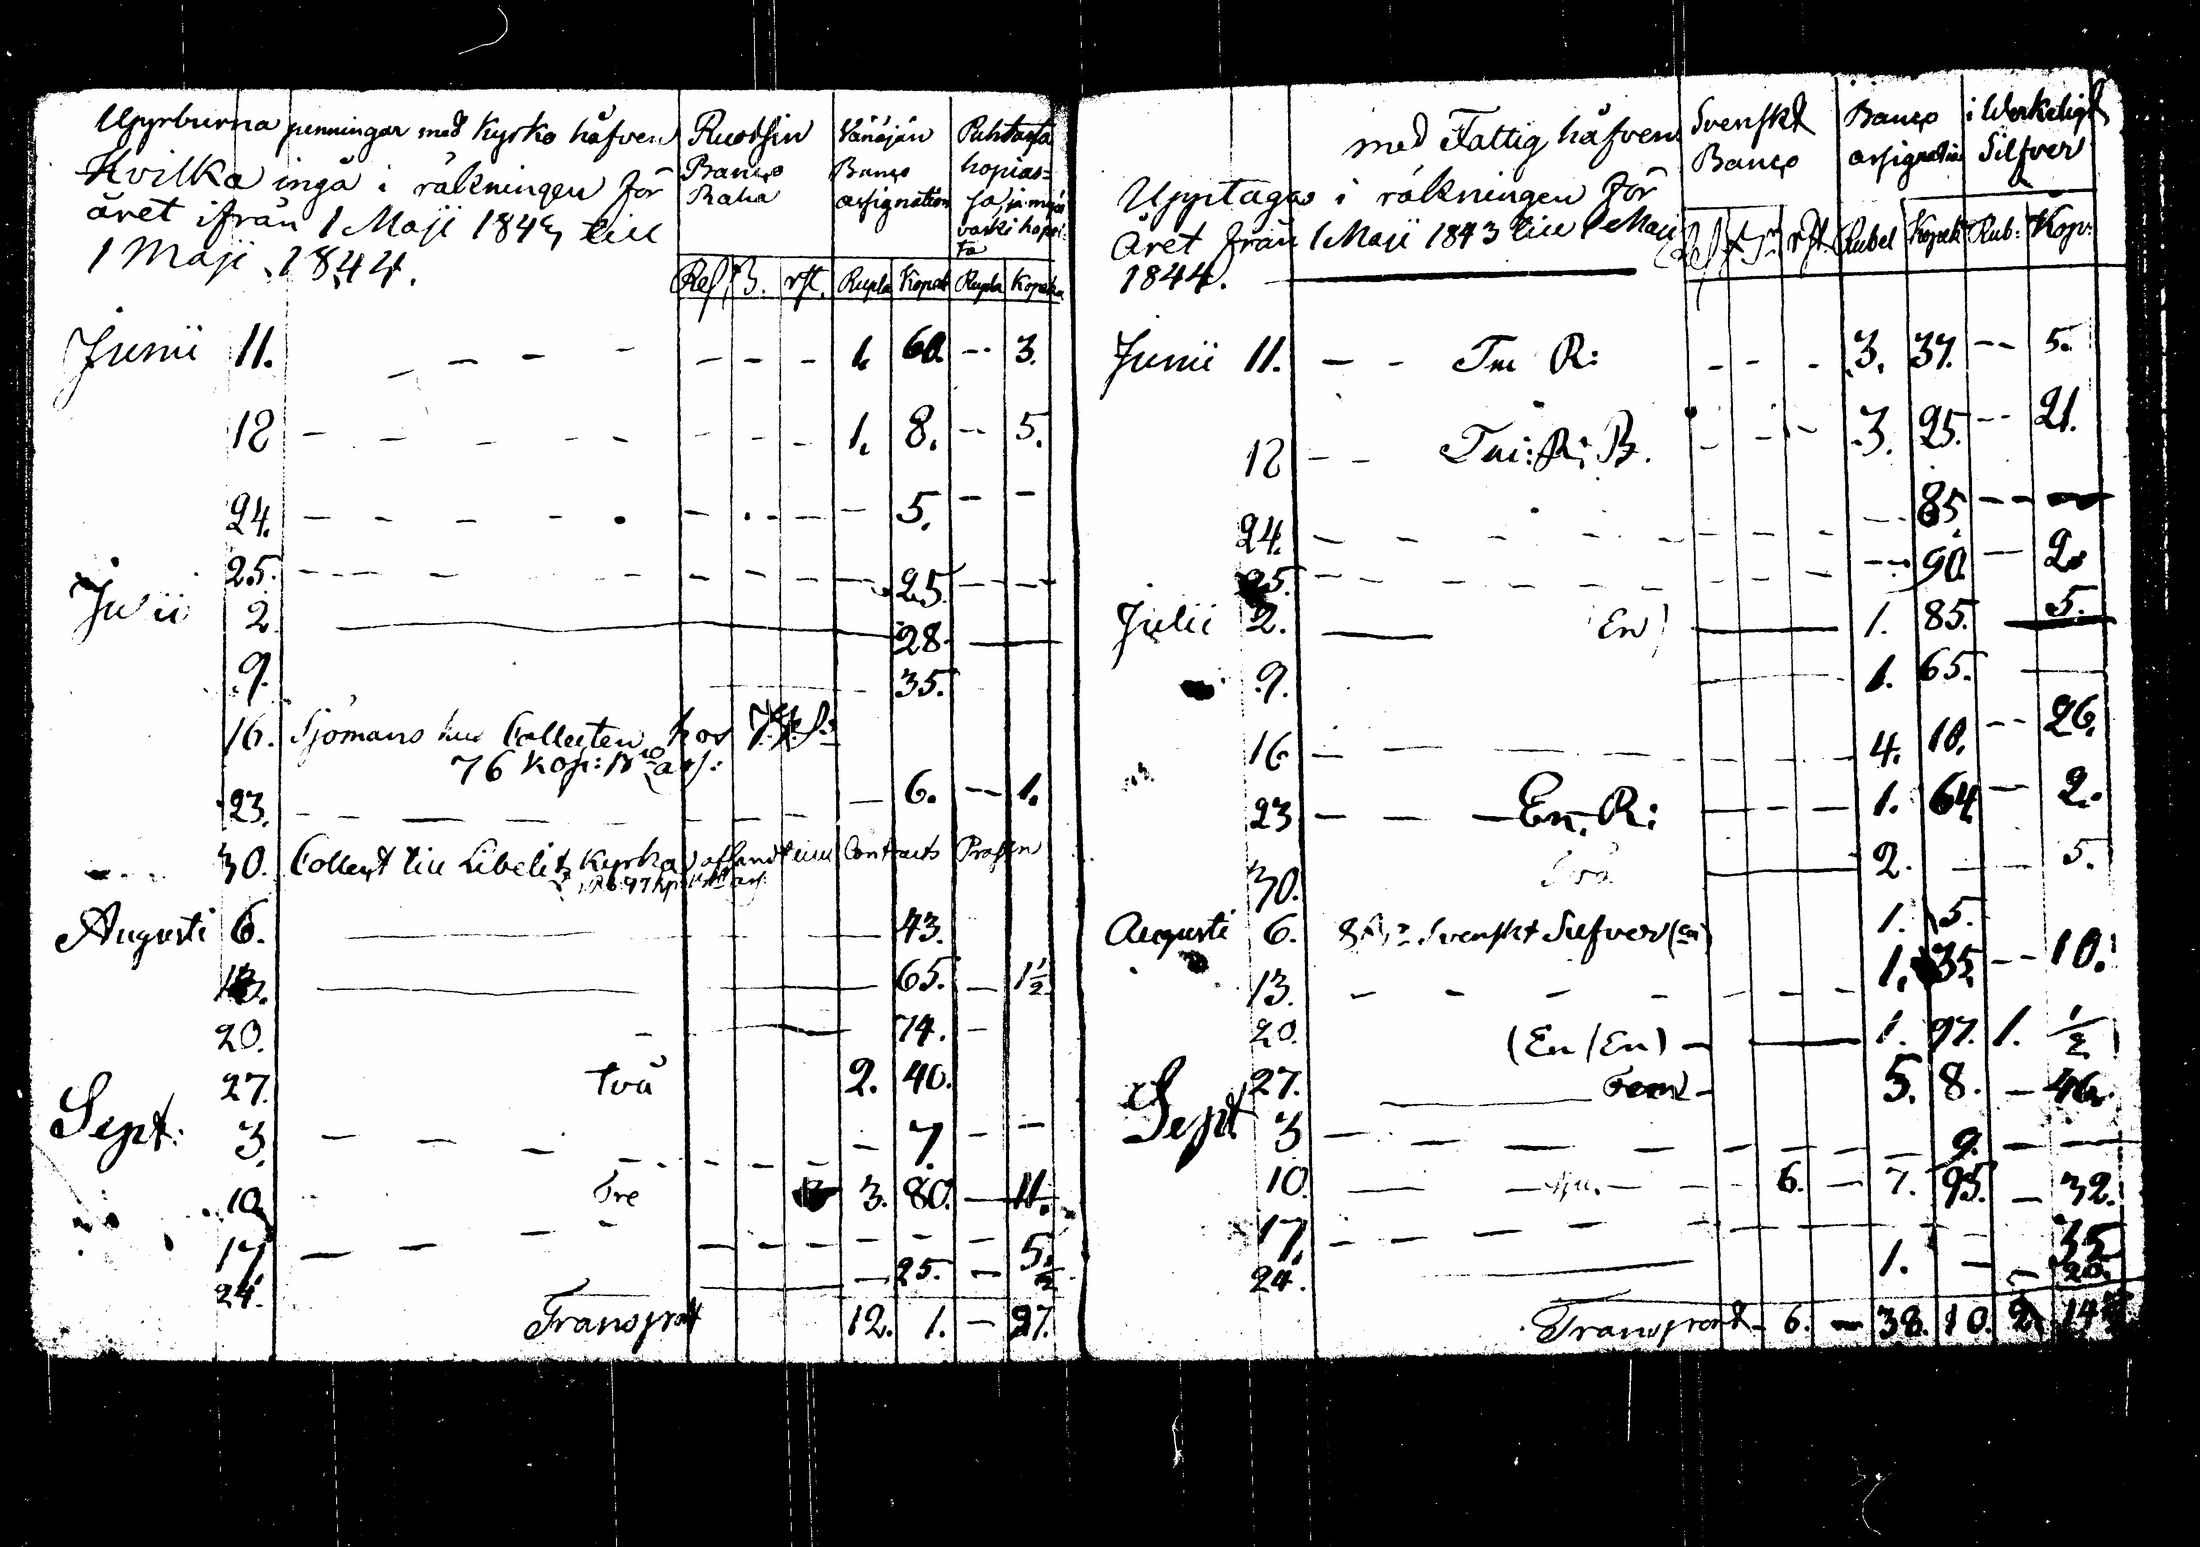 Uppburna penningar med Kyrko håfven
Hvilka ingå i räkningen för
året ifrån 1 Maji 1843 till
1 Maji 1844.
Ruotsin Banco Raha
Vänäjän Banco assignation
Puhtasta hopias=
Rupla Kopek Rupla Kopeka
Junii 11. – – – – – – 1. 60. – 3.
12 – – – – – – – – 1. 8. – 5.
24. – – – – – – – – 5. – –
25. – – – – – – – – 25. – –
Julii 2. 28.
9. 35.
16. Sjömans hus Collecten
76 Kop: Bco ass:
23. – – – – – – – – 6. – 1.
30. Collect till Libelitz Kyrka Contracts Prosten
Augusti 6. 43.
13. 65. – 1 1/2
20. 74. –
27. två 2. 40.
Sept: 3. – – – – – – – 7. – –
10. tre 3. 80. – 11.
17. – – – – – – – – –
24. 25. – 5 1/2
Transport 12. 1. – 27.
med Fattig håfven
Upptagas i räkningen för
året från 1 Maji 1843 till 1 Maji
1844.
Svenskt Banco
Banco assignation
i Werkeligt Silfver
Rubel Kopek Rub: Kop:
Junii 11. – – R: – – – 3. 37. – 5.
12 – – R: B. – – – 3. 25. – 21.
24. – – – – – – – 85. – –
25. – – – – – – – 90. – 2.
Julii 2. En 1. 85. 5.
9. 1. 65.
16. – – – – – – – 4. 10. – 26.
23 – – – En. R: – – – 1. 64. – 2.
30. 2. 5.
Augusti 6. Svenskt Silfver (en) 1. 5.
13. – – – – – – – 1. 35. – 10.
20. (En/En) – 1. 97. 1. 1/2
27. Fem – 5. 8. – 46.
Sept 3 – – – – – – – 9. – –
10. – – – – 6. – 7. 95. – 32.
17. – – – – – – – – 35
24. 1. – – 20.
Transport – 6. – 38. 10. 2. 14